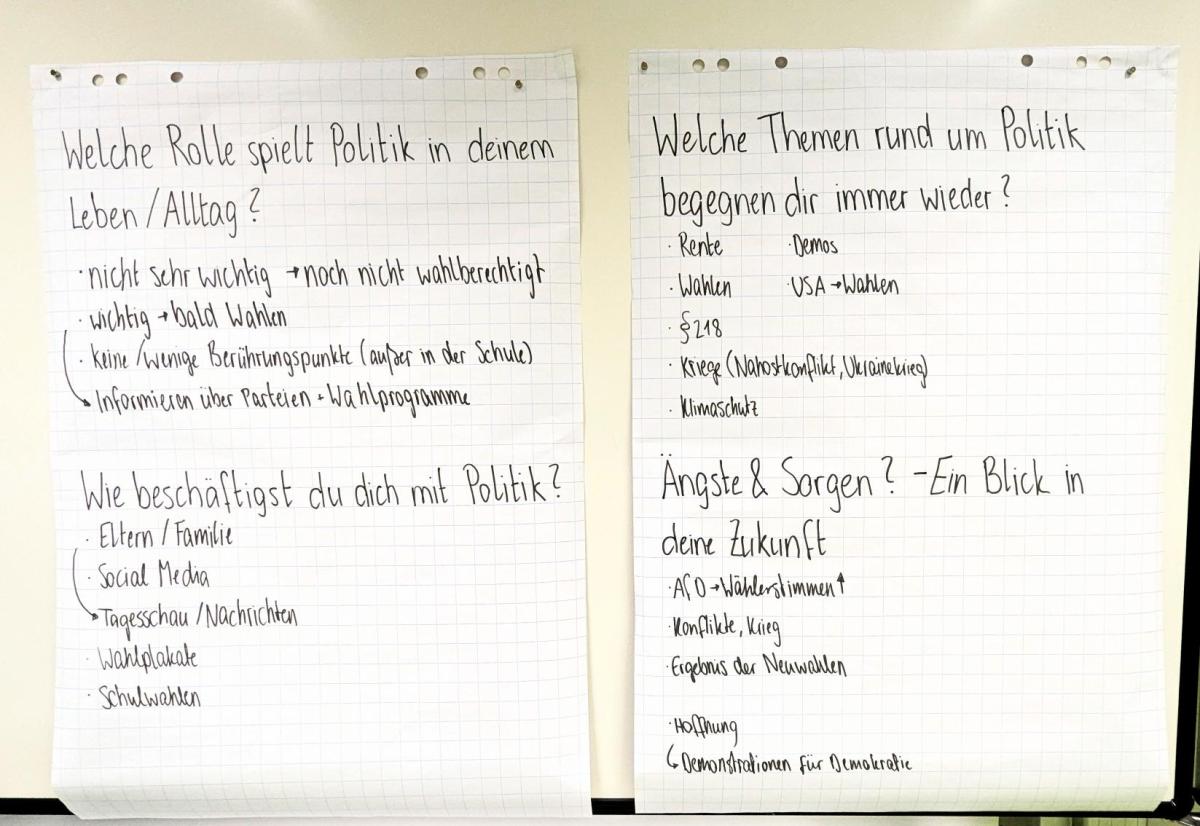 Welche Rolle spielt Politik in deinem
Leben / Alltag?
· nicht sehr wichtig → noch nicht wahlberechtigt
· wichtig → bald Wahlen
· keine / wenige Berührungspunkte (außer in der Schule)
→ Informieren über Parteien + Wahlprogramme
Wie beschäftigst du dich mit Politik?
· Eltern / Familie
· Social Media
→ Tagesschau / Nachrichten
· Wahlplakate
· Schulwahlen
Welche Themen rund um Politik
begegnen dir immer wieder?
· Rente · Demos
· Wahlen · USA → Wahlen
· §218
· Kriege (Nahostkonflikt, Ukrainekrieg)
· Klimaschutz
Ängste & Sorgen? - Ein Blick in
deine Zukunft
· AfD → Wählerstimmen ↑
· Konflikte, Krieg
· Ergebnis der Neuwahlen
· Hoffnung
↳ Demonstrationen für Demokratie